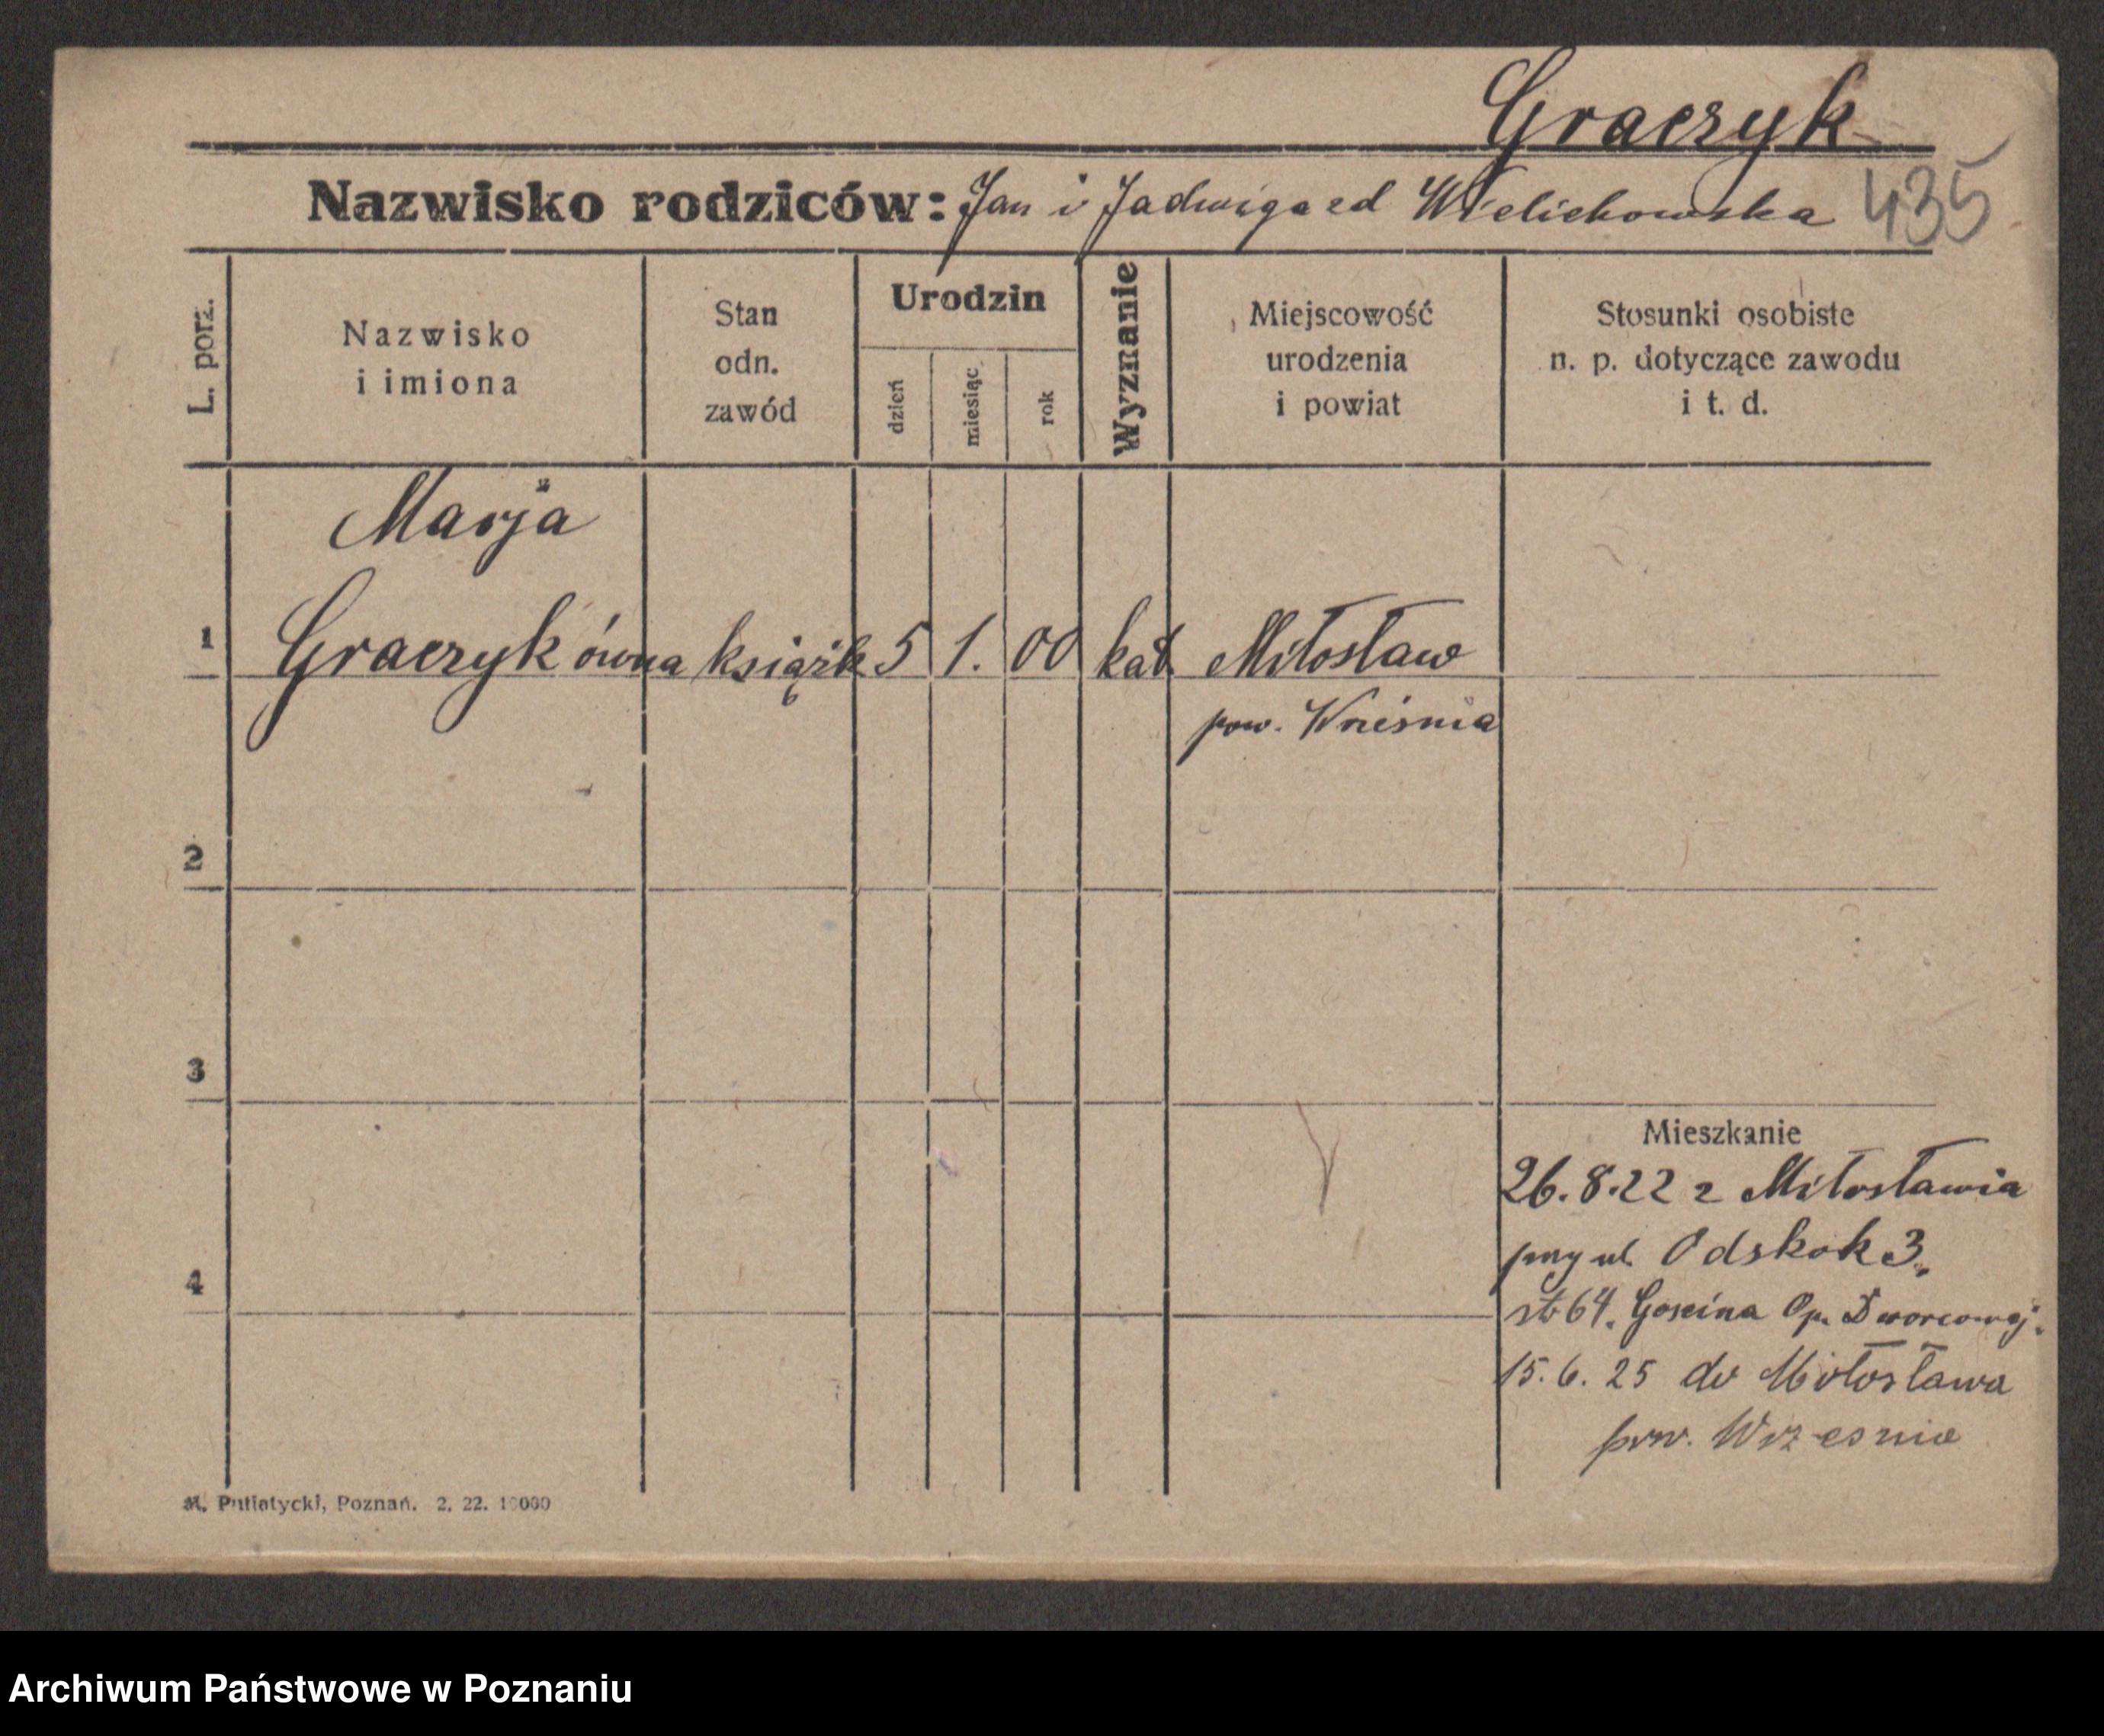 Graczyk
Nazwisko rodziców: Jan i Jadwiga zd Wielichowska 435
L. porz.
Nazwisko
i imiona
Stan
odn.
zawód
Urodzin
dzień
miesiąc
rok
Wyznanie
Miejscowość
urodzenia
i powiat
Stosunki osobiste
n. p. dotyczące zawodu
i t. d.
Marja
1 Graczykówna książk 5 1. 00 kat Miłosław
pow. Września
2
3
4
Mieszkanie
26.8.22 z Miłosławia
przy ul. Odskok 3.
Gościna Dworcowej.
15. 6. 25 do Miłosława
pow. Września
M. Putiatycki, Poznań. 2. 22. 10000
Archiwum Państwowe w Poznaniu